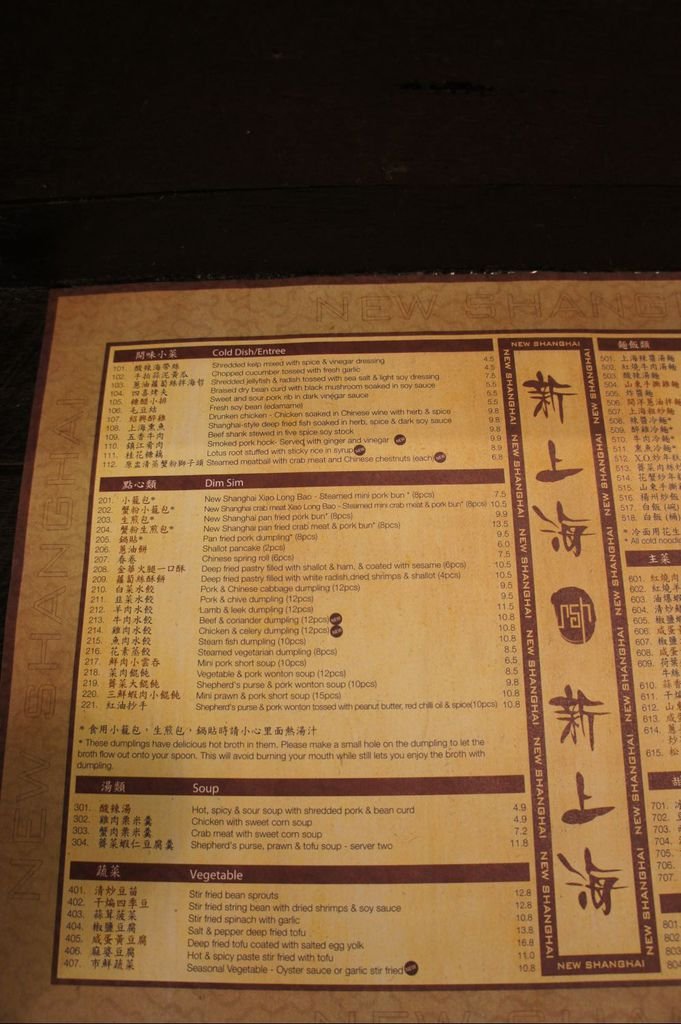 NEW SHANGHAI
開味小菜 Cold Dish/Entree
101. 酸辣海帶絲 Shredded kelp mixed with spice & vinegar dressing 4.5
102. 手拍蒜泥黃瓜 Chopped cucumber tossed with fresh garlic 4.5
103. 蔥油蘿蔔絲拌海哲 Shredded jellyfish & radish tossed with sea salt & light soy dressing 7.5
104. 四喜烤夫 Braised dry bean curd with black mushroom soaked in soy sauce 5.5
105. 糖醋小排 Sweet and sour pork rib in dark vinegar sauce 5.5
106. 毛豆姑 Fresh soy bean (edamame) 5.5
107. 紹興醉雞 Drunken chicken - Chicken soaked in Chinese wine with herb & spice 9.8
108. 上海熏魚 Shanghai-style deep fried fish soaked in herb, spice & dark soy sauce 9.8
109. 五香牛肉 Beef shank stewed in five spice soy stock 9.8
110. 鎮江肴肉 Smoked pork hock- Served with ginger and vinegar NEW 9.9
111. 桂花糖藕 Lotus root stuffed with sticky rice in syrup NEW 8.9
112. 原盅清蒸蟹粉獅子頭 Steamed meatball with crab meat and Chinese chestnuts (each) NEW 6.8
點心類 Dim Sim
201. 小籠包* New Shanghai Xiao Long Bao - Steamed mini pork bun * (8pcs) 7.5
202. 蟹粉小籠包* New Shanghai crab meat Xiao Long Bao - Steamed mini crab meat & pork bun* (8pcs) 10.5
203. 生煎包* New Shanghai pan fried pork bun* (8pcs) 9.9
204. 蟹粉生煎包* New Shanghai pan fried crab meat & pork bun* (8pcs) 13.5
205. 鍋貼* Pan fried pork dumpling* (8pcs) 9.5
206. 蔥油餅 Shallot pancake (2pcs) 6.0
207. 春卷 Chinese spring roll (6pcs) 7.5
208. 金華火腿一口酥 Deep fried pastry filled with shallot & ham, & coated with sesame (6pcs) 10.5
209. 蘿蔔絲酥餅 Deep fried pastry filled with white radish,dried shrimps & shallot (4pcs) 10.5
210. 白菜水餃 Pork & Chinese cabbage dumpling (12pcs) 9.5
211. 韭菜水餃 Pork & chive dumpling (12pcs) 9.5
212. 羊肉水餃 Lamb & leek dumpling (12pcs) 11.5
213. 牛肉水餃 Beef & coriander dumpling (12pcs) NEW 10.8
214. 雞肉水餃 Chicken & celery dumpling (12pcs) NEW 10.8
215. 魚肉水餃 Steam fish dumpling (10pcs) 10.8
216. 花素蒸餃 Steamed vegetarian dumpling (8pcs) 8.5
217. 鮮肉小雲吞 Mini pork short soup (10pcs) 6.5
218. 菜肉餛飩 Vegetable & pork wonton soup (12pcs) 8.5
219. 薺菜大餛飩 Shepherd's purse & pork wonton soup (10pcs) 9.8
220. 三鮮蝦肉小餛飩 Mini prawn & pork short soup (15pcs) 10.8
221. 紅油抄手 Shepherd's purse & pork wonton tossed with peanut butter, red chilli oil & spice(10pcs) 10.8
* 食用小籠包，生煎包，鍋貼時請小心里面熱湯汁
* These dumplings have delicious hot broth in them. Please make a small hole on the dumpling to let the
broth flow out onto your spoon. This will avoid burning your mouth while still lets you enjoy the broth with
dumpling.
湯類 Soup
301. 酸辣湯 Hot, spicy & sour soup with shredded pork & bean curd 4.9
302. 雞肉粟米羹 Chicken with sweet corn soup 4.9
303. 蟹肉粟米羹 Crab meat with sweet corn soup 7.2
304. 薺菜蝦仁豆腐羹 Shepherd's purse, prawn & tofu soup - server two 11.8
蔬菜 Vegetable
401. 清炒豆苗 Stir fried bean sprouts 12.8
402. 干煸四季豆 Stir fried string bean with dried shrimps & soy sauce 12.8
403. 蒜茸菠菜 Stir fried spinach with garlic 10.8
404. 椒鹽豆腐 Salt & pepper deep fried tofu 13.8
405. 咸蛋黃豆腐 Deep fried tofu coated with salted egg yolk 16.8
406. 麻婆豆腐 Hot & spicy paste stir fried with tofu 11.0
407. 市鮮蔬菜 Seasonal Vegetable - Oyster sauce or garlic stir fried NEW 10.8
NEW SHANGHAI
新上海
新上海
NEW SHANGHAI NEW SHANGHAI NEW SHANGHAI NEW SHANGHAI NEW SHANGHAI NEW SHANGHAI
NEW SHANGHAI
麵飯類
501. 上海辣醬湯麵
502. 紅燒牛肉湯麵
503. 酸辣湯麵
504. 山東手撕雞麵
505. 炸醬麵
506. 開洋蔥油拌麵
507. 上海粗炒麵
508. 辣醬冷麵*
509. 醉雞冷麵*
510. 牛肉冷麵*
511. 熏魚冷麵*
512. X.O.炒年糕
513. 薺菜肉絲炒
514. 花蟹炒年糕
515. 山東手撕
516. 楊州炒飯
517. 白飯 (碗)
518. 白飯 (桶)
* 冷面用花生
* All cold noodle
主菜
601. 紅燒肉
602. 紅燒羊
603. 油爆蝦
604. 清炒
605. 椒鹽
606. 咸蛋
607. 椒鹽
608. 咸蛋
609. 荷葉
610. 蒜香
611. 干煸
612. 山
613. 咸
614. 蔥
615. 松
701.
702.
703.
704.
705.
706.
707.
801
802
803
804